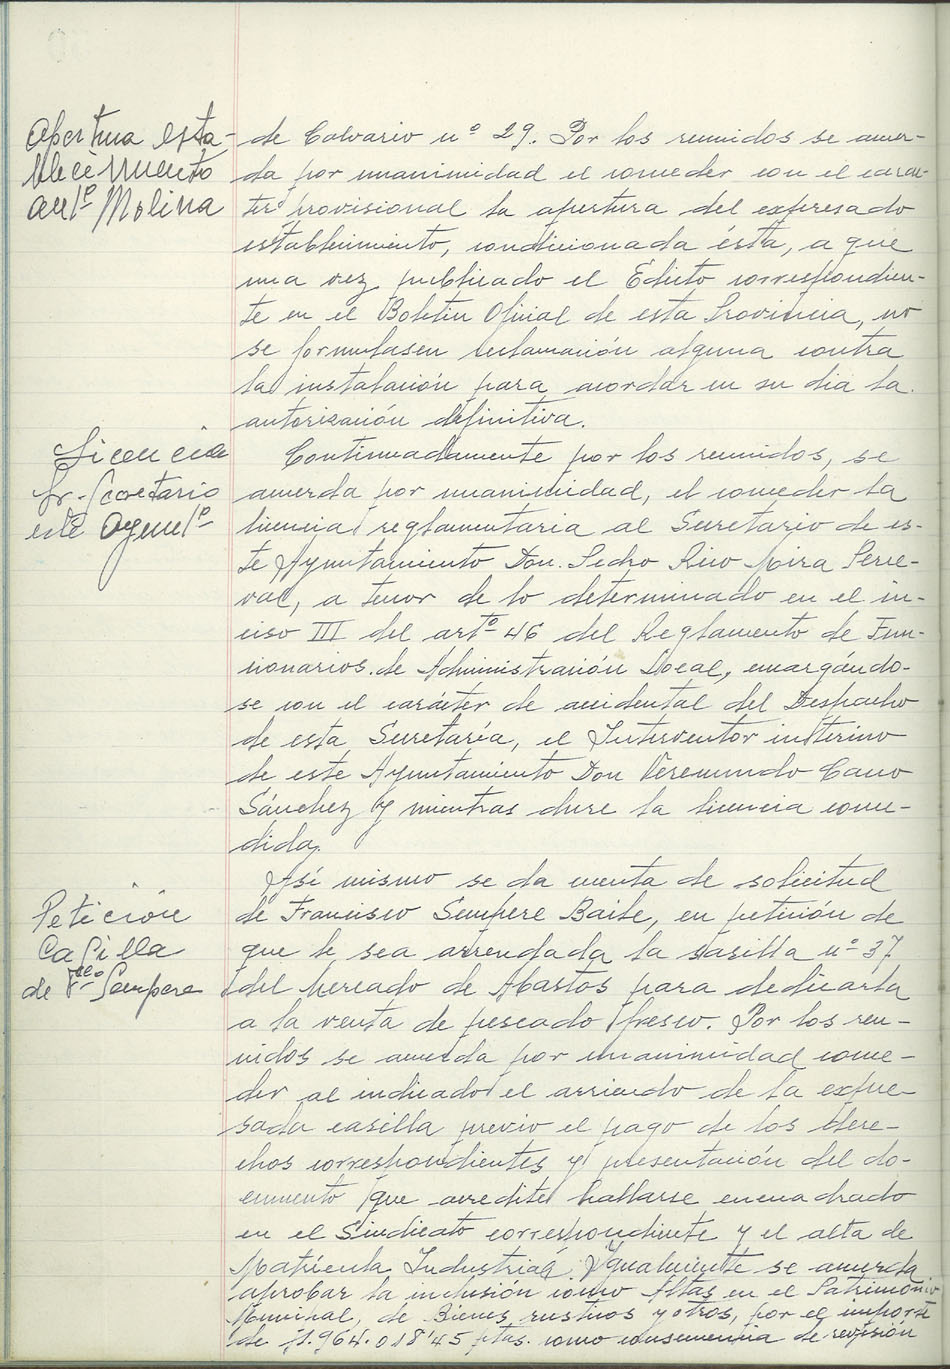 Apertura esta-
blecimiento
Antº Molina
de Calvario nº 29. Por los reunidos se acuer-
da por unanimidad el conceder con el carac-
ter provisional la apertura del expresado
establecimiento, condicionada ésta, a que
una vez publicado el Edicto correspondien-
te en el Boletin Oficial de esta Provincia, no
se formulasen reclamación alguna contra
la instalación para acordar en su dia la
autorización definitiva.
Licencia
Sr. Secretario
este Ayuntº
Continuadamente por los reunidos, se
acuerda por unanimidad, el conceder la
licencia reglamentaria al Secretario de es-
te Ayuntamiento Don Pedro Rico Mira Perce-
val, a tenor de lo determinado en el in-
ciso III del artº 46 del Reglamento de Fun-
cionarios de Administración Local, encargándo-
se con el carácter de accidental del Despacho
de esta Secretaría, el Interventor interino
de este Ayuntamiento Don Veremundo Cano
Sánchez y mientras dure la licencia conce-
dida.
Petición
Casilla
de Fcº Sempere
Así mismo se da cuenta de solicitud
de Francisco Sempere Baile, en petición de
que le sea arrendada la casilla nº 37
del Mercado de Abastos para dedicarla
a la venta de pescado fresco. Por los reu-
nidos se acuerda por unanimidad conce-
der al indicado el arriendo de la expre-
sada casilla previo el pago de los dere-
chos correspondientes y presentación del do-
cumento que acredite hallarse encuadrado
en el Sindicato correspondiente y el alta de
Matrícula Industrial. Igualmente se acuerda
aprobar la inclusión como Altas en el Patrimonio
Municipal, de Bienes rusticos y otros, por el importe
de 1.964.018'45 ptas. como consecuencia de revisión